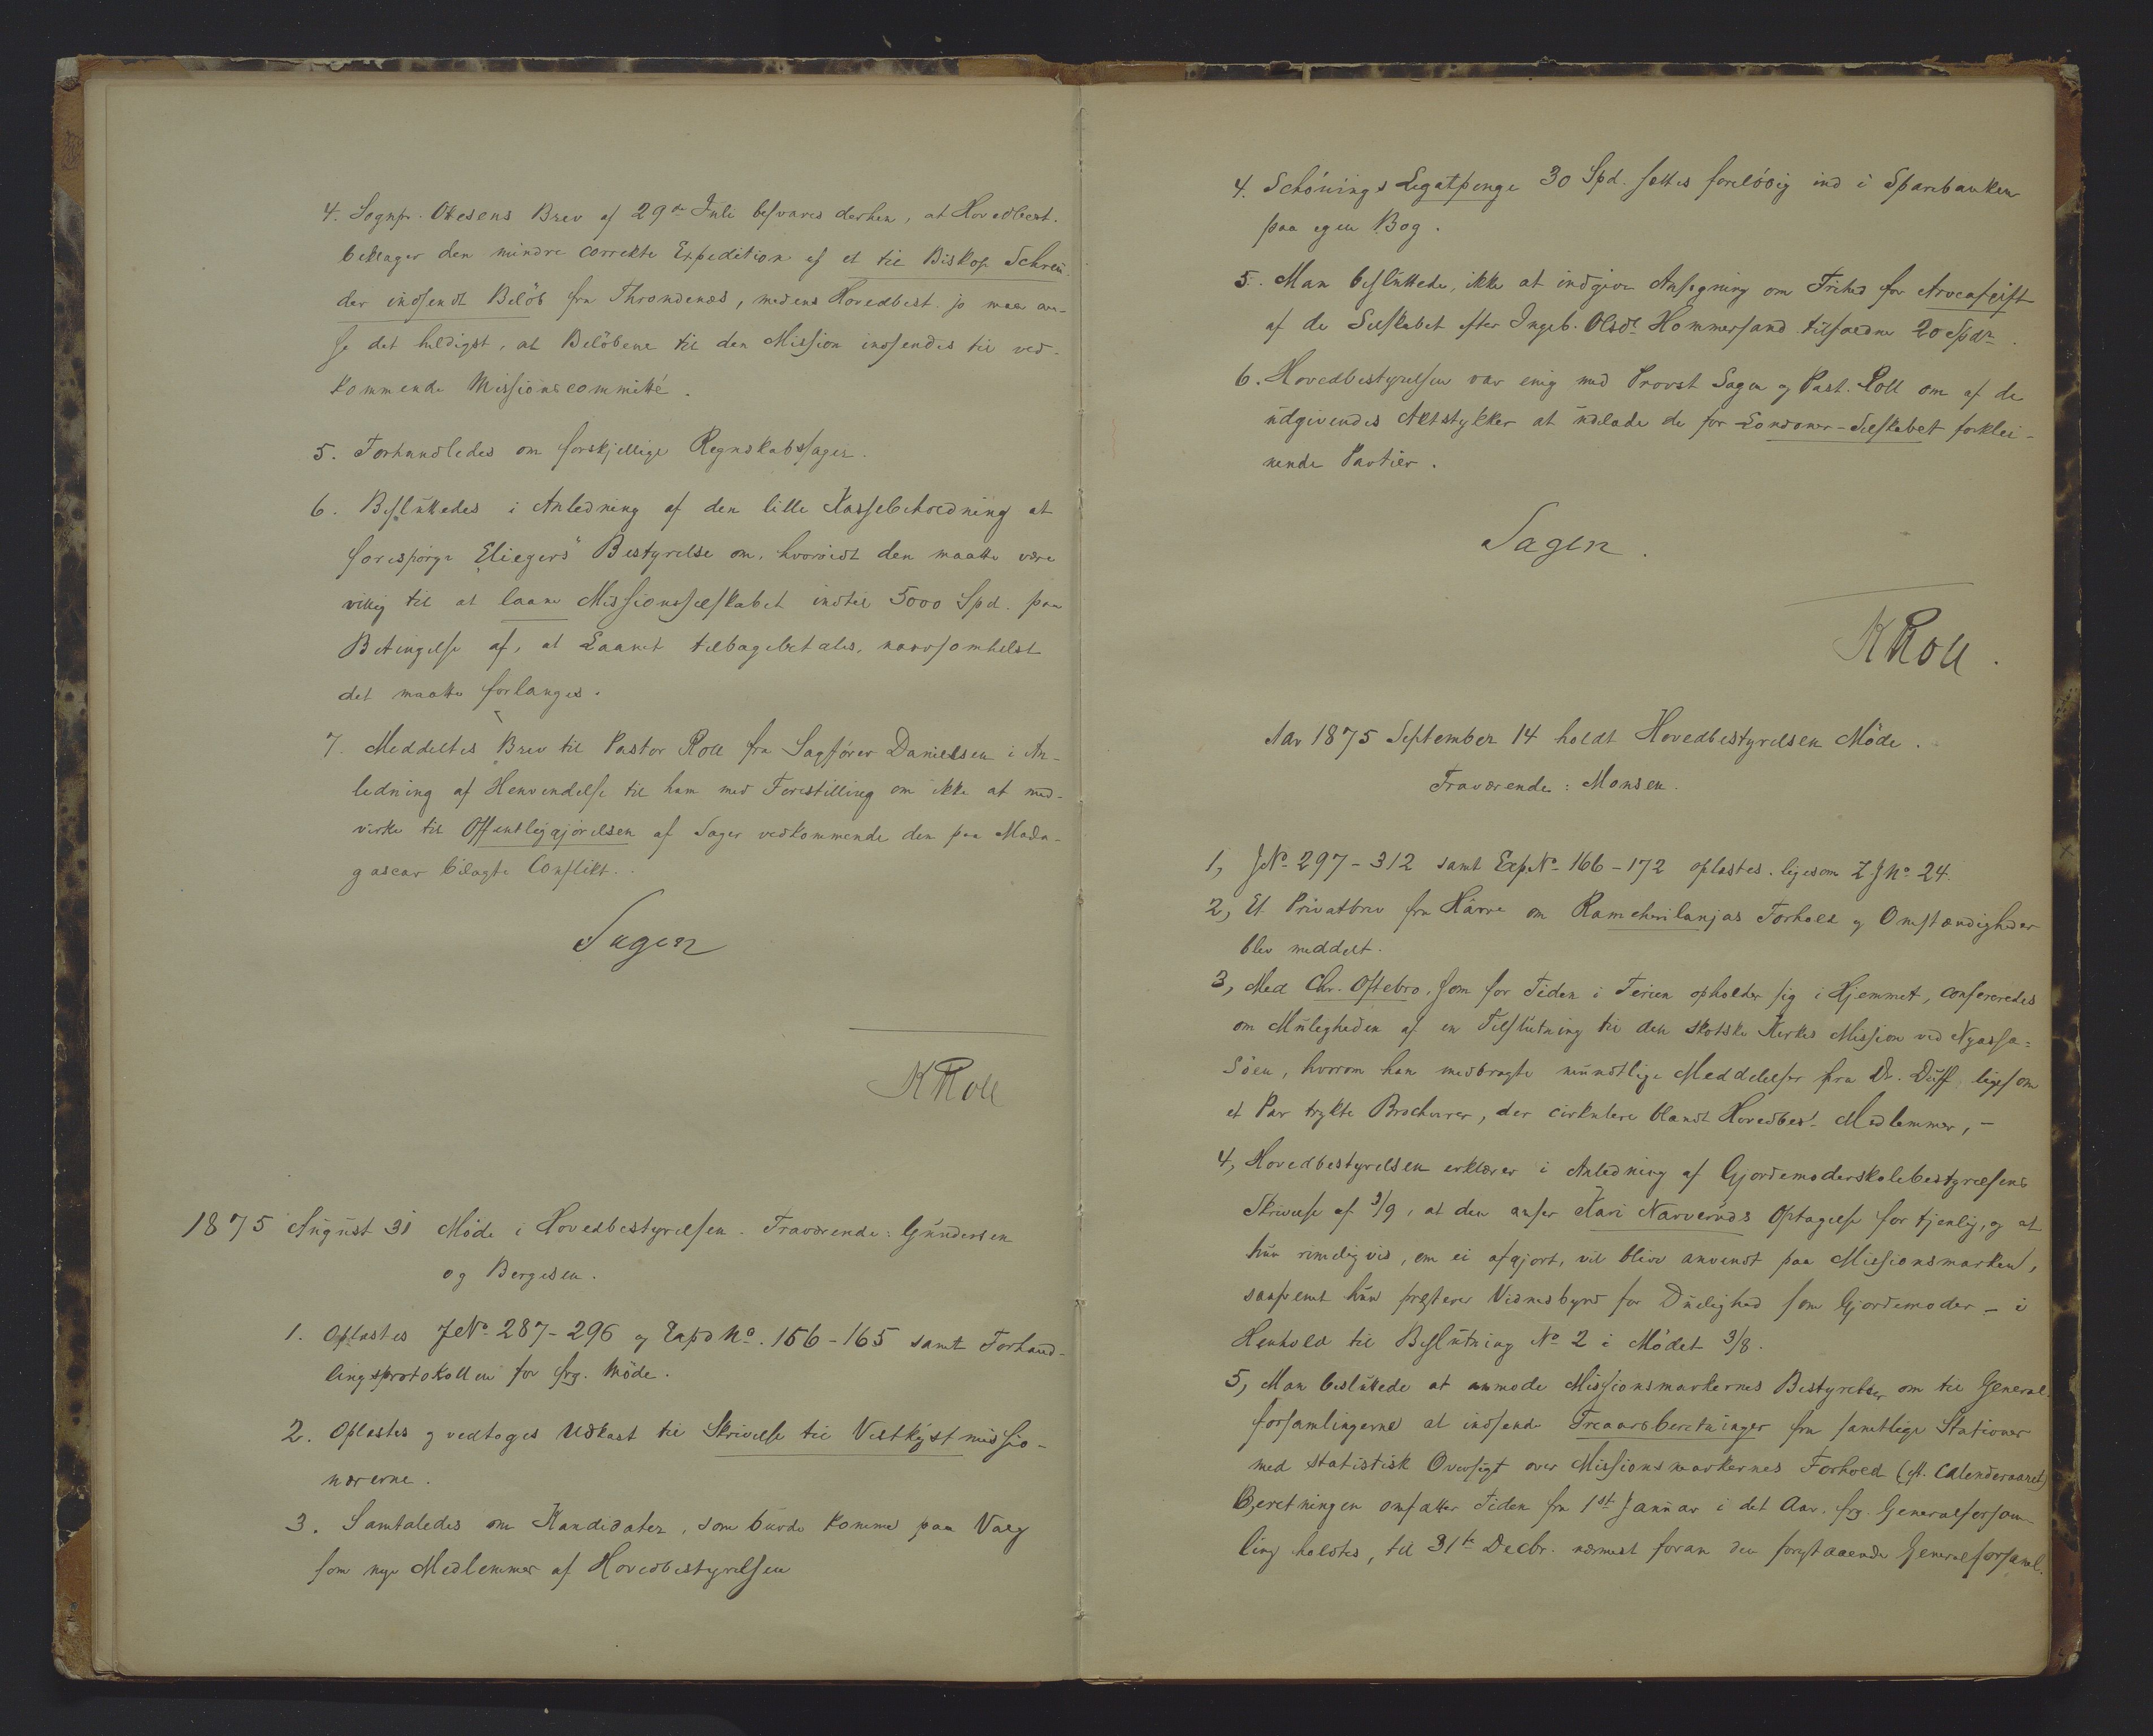 4. Sognpr. Otesens Brev af 29de Juli besvares derhen, at Hovedbest.
beklager den mindre correkte Expedition af et til Biskop Schreu-
der indsendt Beløb fra Throndenæs, medens Hovedbest. jo maa an-
se det heldigst, at Beløbene til den Mission indsendes til ved-
kommende Missionscommitté.
5. Forhandledes om forskjellige Regnskabssager.
6. Besluttedes i Anledning af den lille Kassebeholdning at
forespørge "Eliezers" Bestyrelse om, hvorvidt den maatte være
villig til at laane Missionsselskabet indtil 5000 Spd. paa
Betingelse af, at Laanet tilbagebetales, naarsomhelst
det maatte forlanges.
7. Meddeltes Brev til Pastor Roll fra Sagfører Danielsen i An-
ledning af Henvendelse til ham med Forestilling om ikke at med-
virke til Offentliggjørelsen af Sager vedkommende den paa Mada-
gascar bilagte Conflikt.
Sagen
KRoll
1875 August 31 Møde i Hovedbestyrelsen. Fraværende: Gundersen
og Borgesen.
1. Oplæstes JNo. 287-296 og Expd No. 156-165 samt Forhand-
lingsprotokollen for frg. Møde.
2. Oplæstes og vedtoges Udkast til Skrivelse til Vestkystmissio-
nærerne.
3. Samtaledes om Kandidater, som burde komme paa Valg
som nye Medlemmer af Hovedbestyrelsen
4. Schönings Legatpenge 30 Spd. sættes foreløbig ind i Sparebanken
paa egen Bog.
5. Man besluttede, ikke at indgive Ansøgning om Frihed for Arveafgift
af de Selskabet efter Ingeb. Olsdr. Hommersand tilfaldne 20 Spdr.
6. Hovedbestyrelsen var enig med Provst Sagen og Past. Roll om af de
udgivendes Aktstykker at udelade de for Londoner-Selskabet forklei-
nende Partier.
Sagen.
KRoll.
Aar 1875 September 14 holdt Hovedbestyrelsen Møde.
Fraværende: Monsen.
1, JNo 297-312 samt ExpNo 166-172 oplæstes. ligesom Z.JNo 24.
2, Et Privatbrev fra Härre om Ramcherilanjas Forhold og Omstændigheder
blev meddelt.
3, Med Chr. Oftebro, som for Tiden i Ferien opholder sig i Hjemmet, confereredes
om Muligheden af en Tilslutning til den skotske Kirkes Mission ved Nyassa=
Søen, hvorom han medbragte mundtlige Meddelelser fra Dr. Duff, ligesom
et Par trykte Brochurer, der cirkulere blandt Hovedbest. Medlemmer,-
4, Hovedbestyrelsen erklærer i Anledning af Gjordemoderskolebestyrelsens
Skrivelse af 3/9, at den anser Kari Narveruds Optagelse for tjenlig, og at
hun rimeligvis, om ei afgjort, vil blive anvendt paa Missionsmarken,
saafremt hun præsterer Vidnesbyrd for Duelighed som Gjordemoder - i
Henhold til Beslutning No 2 i Mødet 3/8.
5, Man besluttede at anmode Missionsmarkernes Bestyrelser om til General-
forsamlingerne at indsende Treaarsberetninger fra samtlige Stationer
med statistisk Oversigt over Missionsmarkernes Forhold (eft. Calenderaaret)
Beretningen omfatter Tiden fra 1st Januar i det Aar, frg. Generalforsam-
ling holdtes, til 31te Decbr. nærmest foran den forestaaende Generalforsaml.